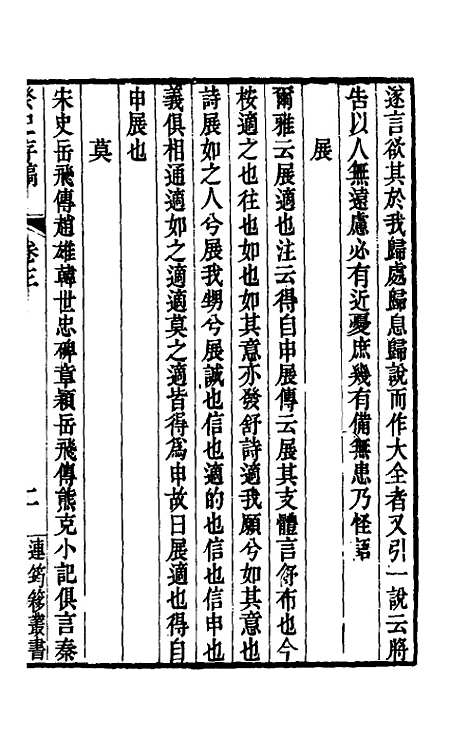 遂言欲其於我歸處歸息歸說而作大全者又引一說云將
告以人無遠慮必有近憂庶幾有備無患乃怪語
展
爾雅云展適也注云得自申展傳云展其支體言舒布也今
桉適之也往也如其意亦發舒詩適我願兮如其意也
詩展如之人兮展我甥兮展誠也信也適的也信也信申也
義俱相通適如之適適莫之適皆得爲申故曰展適也得自
申展也
莫
宋史岳飛傳趙雄韓世忠碑章穎岳飛傳熊克小記俱言秦
癸巳存稿
卷三
二
連筠簃叢書